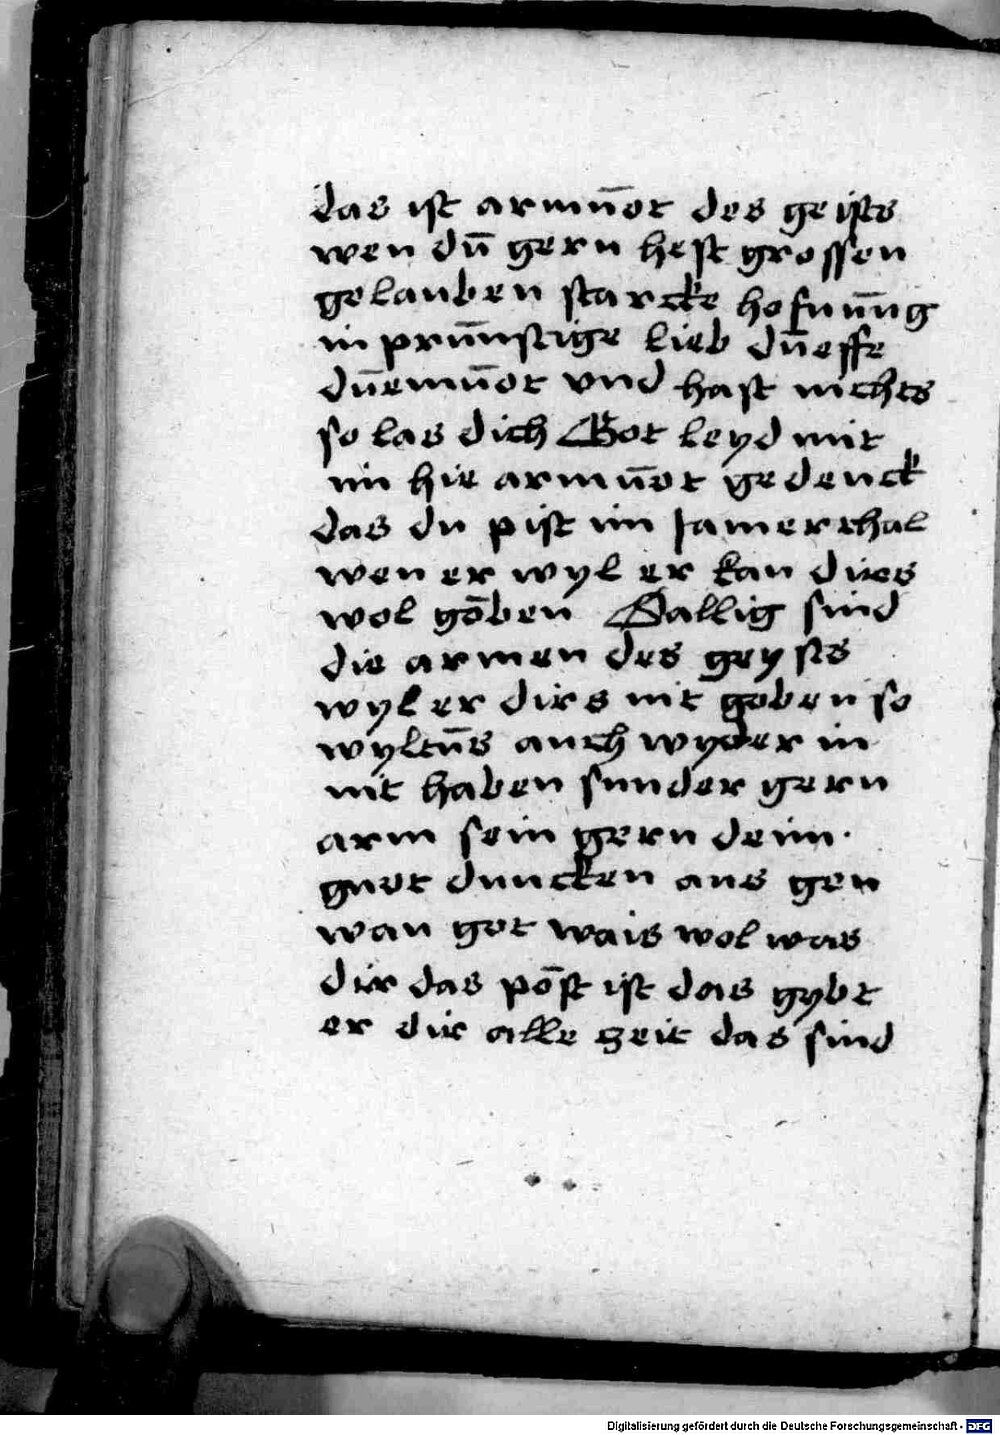 das ist armūot des geists
wen dū gern hest grossen
gelauben starcke hofnūng
in prūnstige lieb dūeffe
dūemūot vnd hast nichts
so las dich Got leyd mit
im hie armūot gedenck
das du pist im Jamerthal
wen er wyl er kan dirs
wol gōben Sallig sind
die armen des geysts
wyl er dirs nit goben so
wyltūs auch wyder in
nit haben sunder gern
arm sein gern deim
guot duncken aus gen
wan got wais wol was
dir das pōst ist das gybt
er dir alle zeit das sind
Digitalisierung gefördert durch die Deutsche Forschungsgemeinschaft - DFG